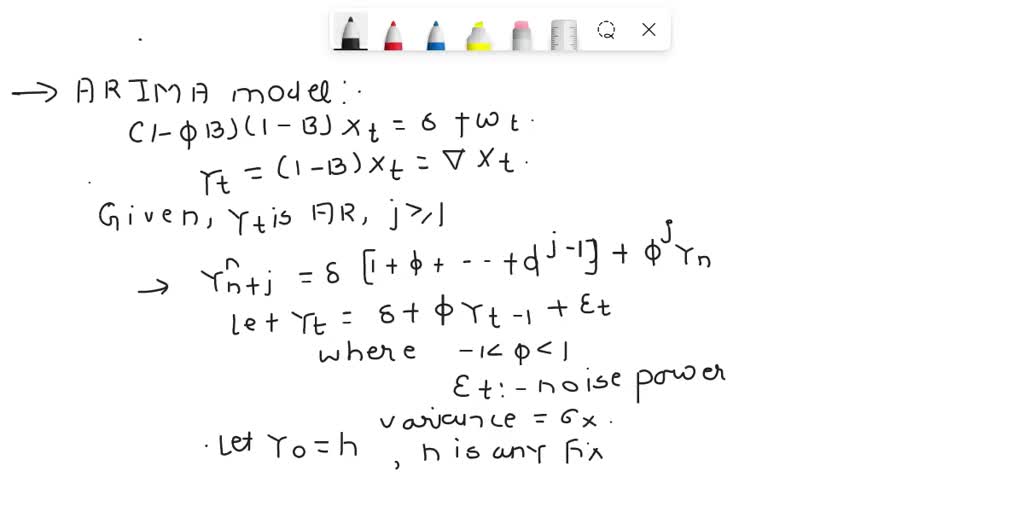 → ARIMA model:
(1-ϕB)(1-B) Xt = δ + ωt.
Yt = (1-B)Xt = ∇ Xt.
Given, Yt is AR, j≥1
→ Y^n_{n+j} = δ [1+ϕ+---+d^{j-1}] + ϕ^j Yn
Let Yt = δ + ϕ Yt-1 + Ɛt
where -1< ϕ <1
Ɛt:- noise power
variance = σx.
.Let Y0 = h , h is any fix